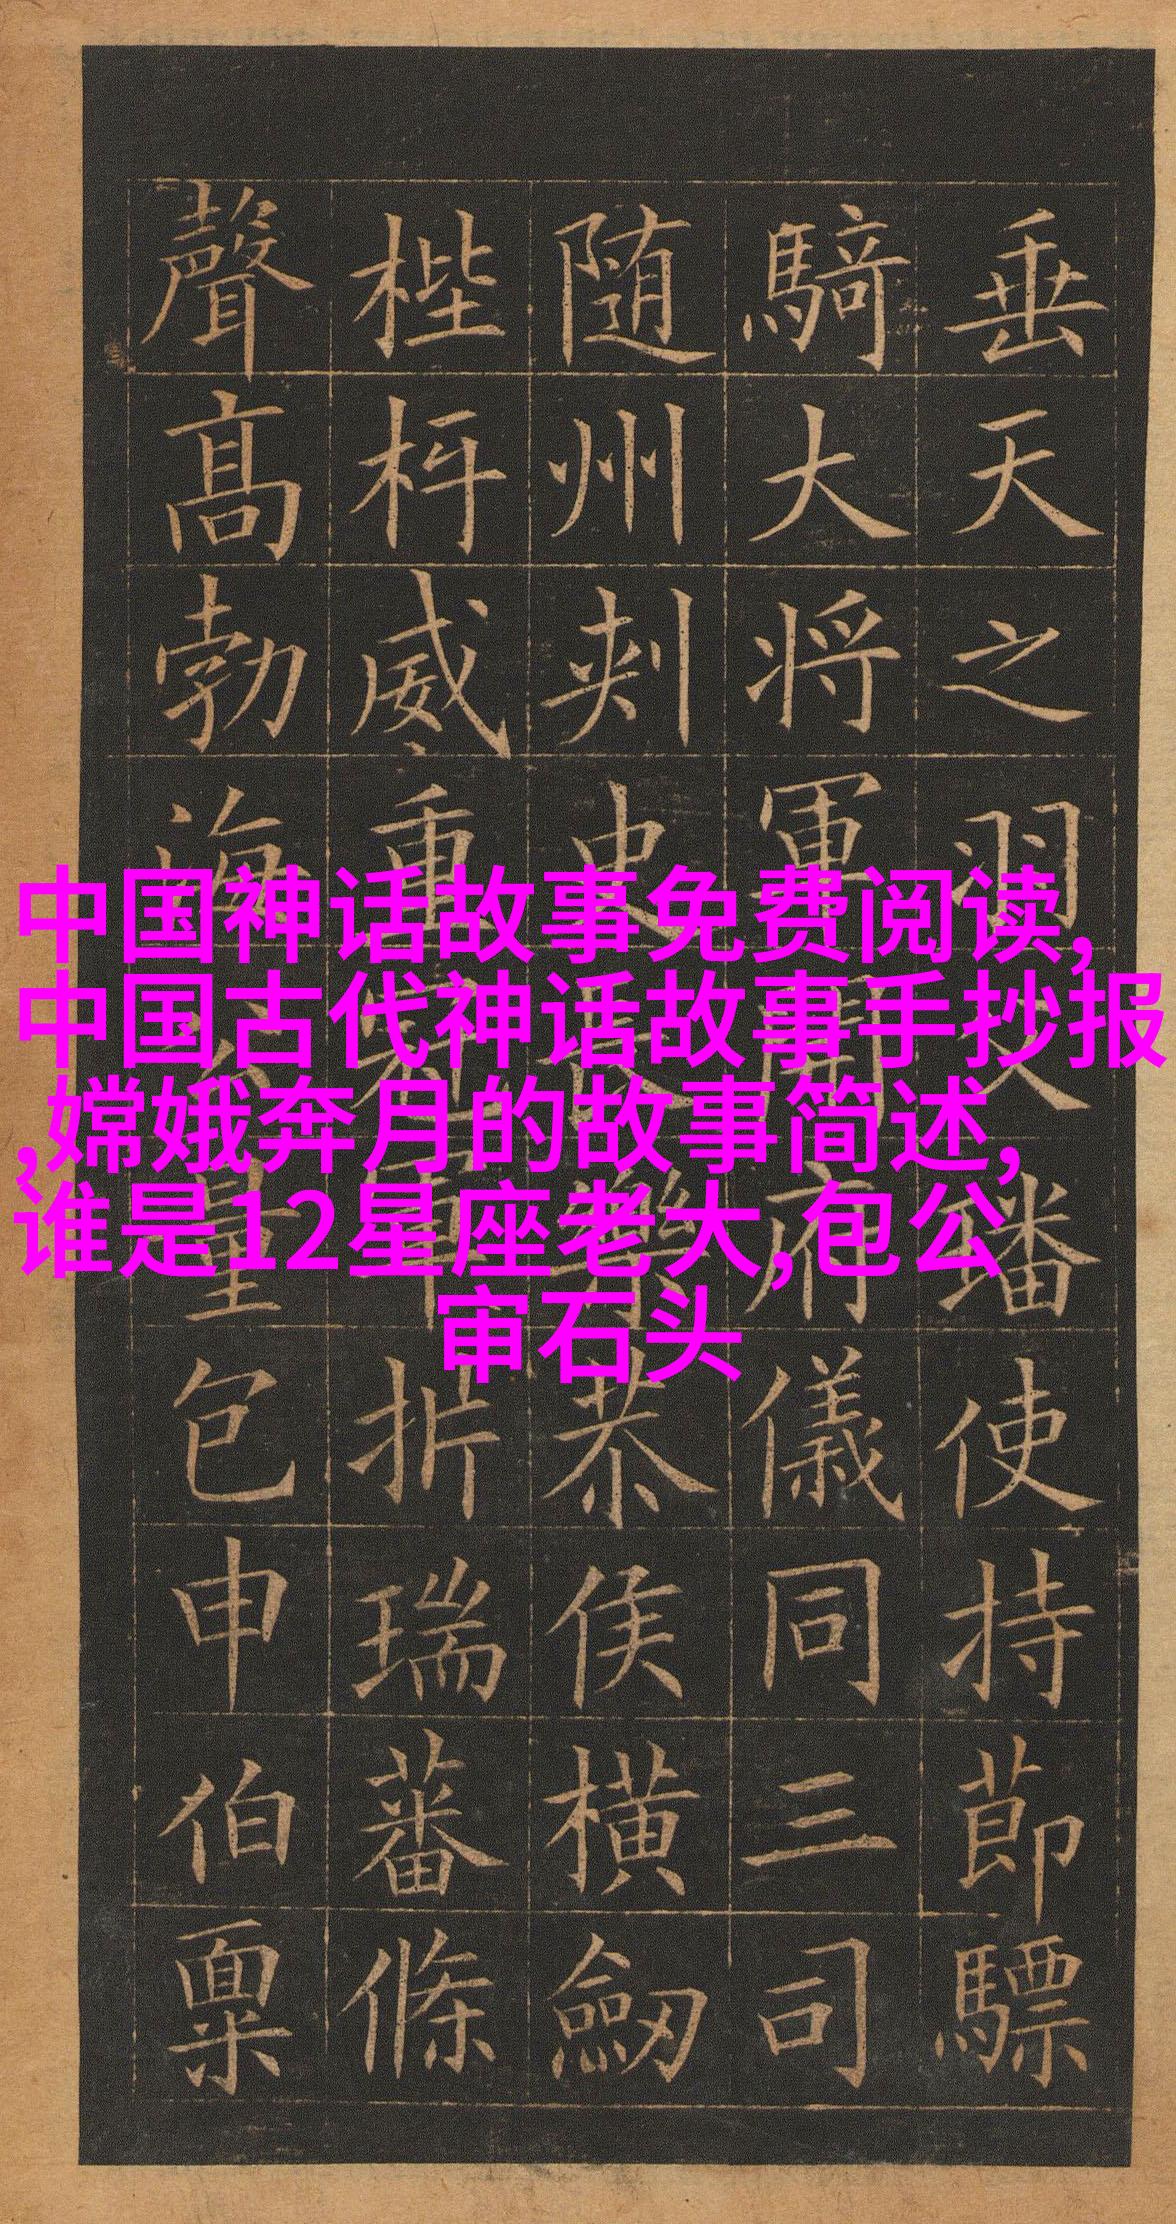 垂天之羽父璠使持節驃
騎大将軍開府儀同三司
随州刾史長樂恭侯橫劒
梐枑威重冠軍折瑞蕃條
聲高勃海公量包申伯稟
中国神话故事免费阅读,
中国古代神话故事手抄报
,嫦娥奔月的故事简述,
谁是12星座老大,包公
审石头